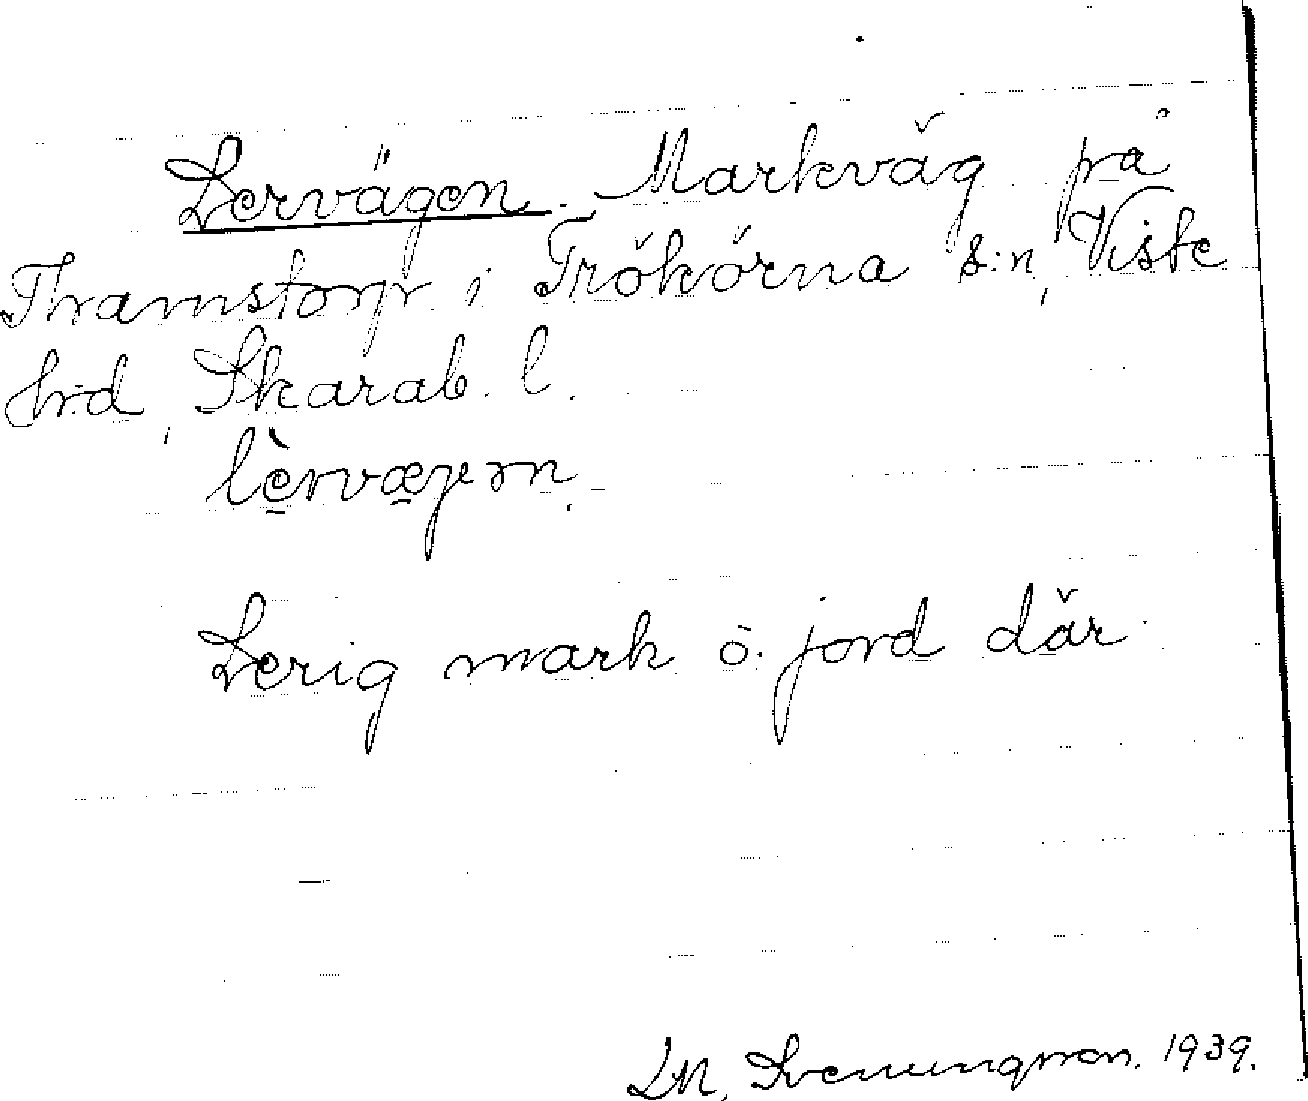 Lervägen. Markväg på
Thamstorp i Trökörna s:n, Viste
hrd, Skarab. l.
lèrvægən.
Lerig mark o. jord där.
Svenungsson. 1939.